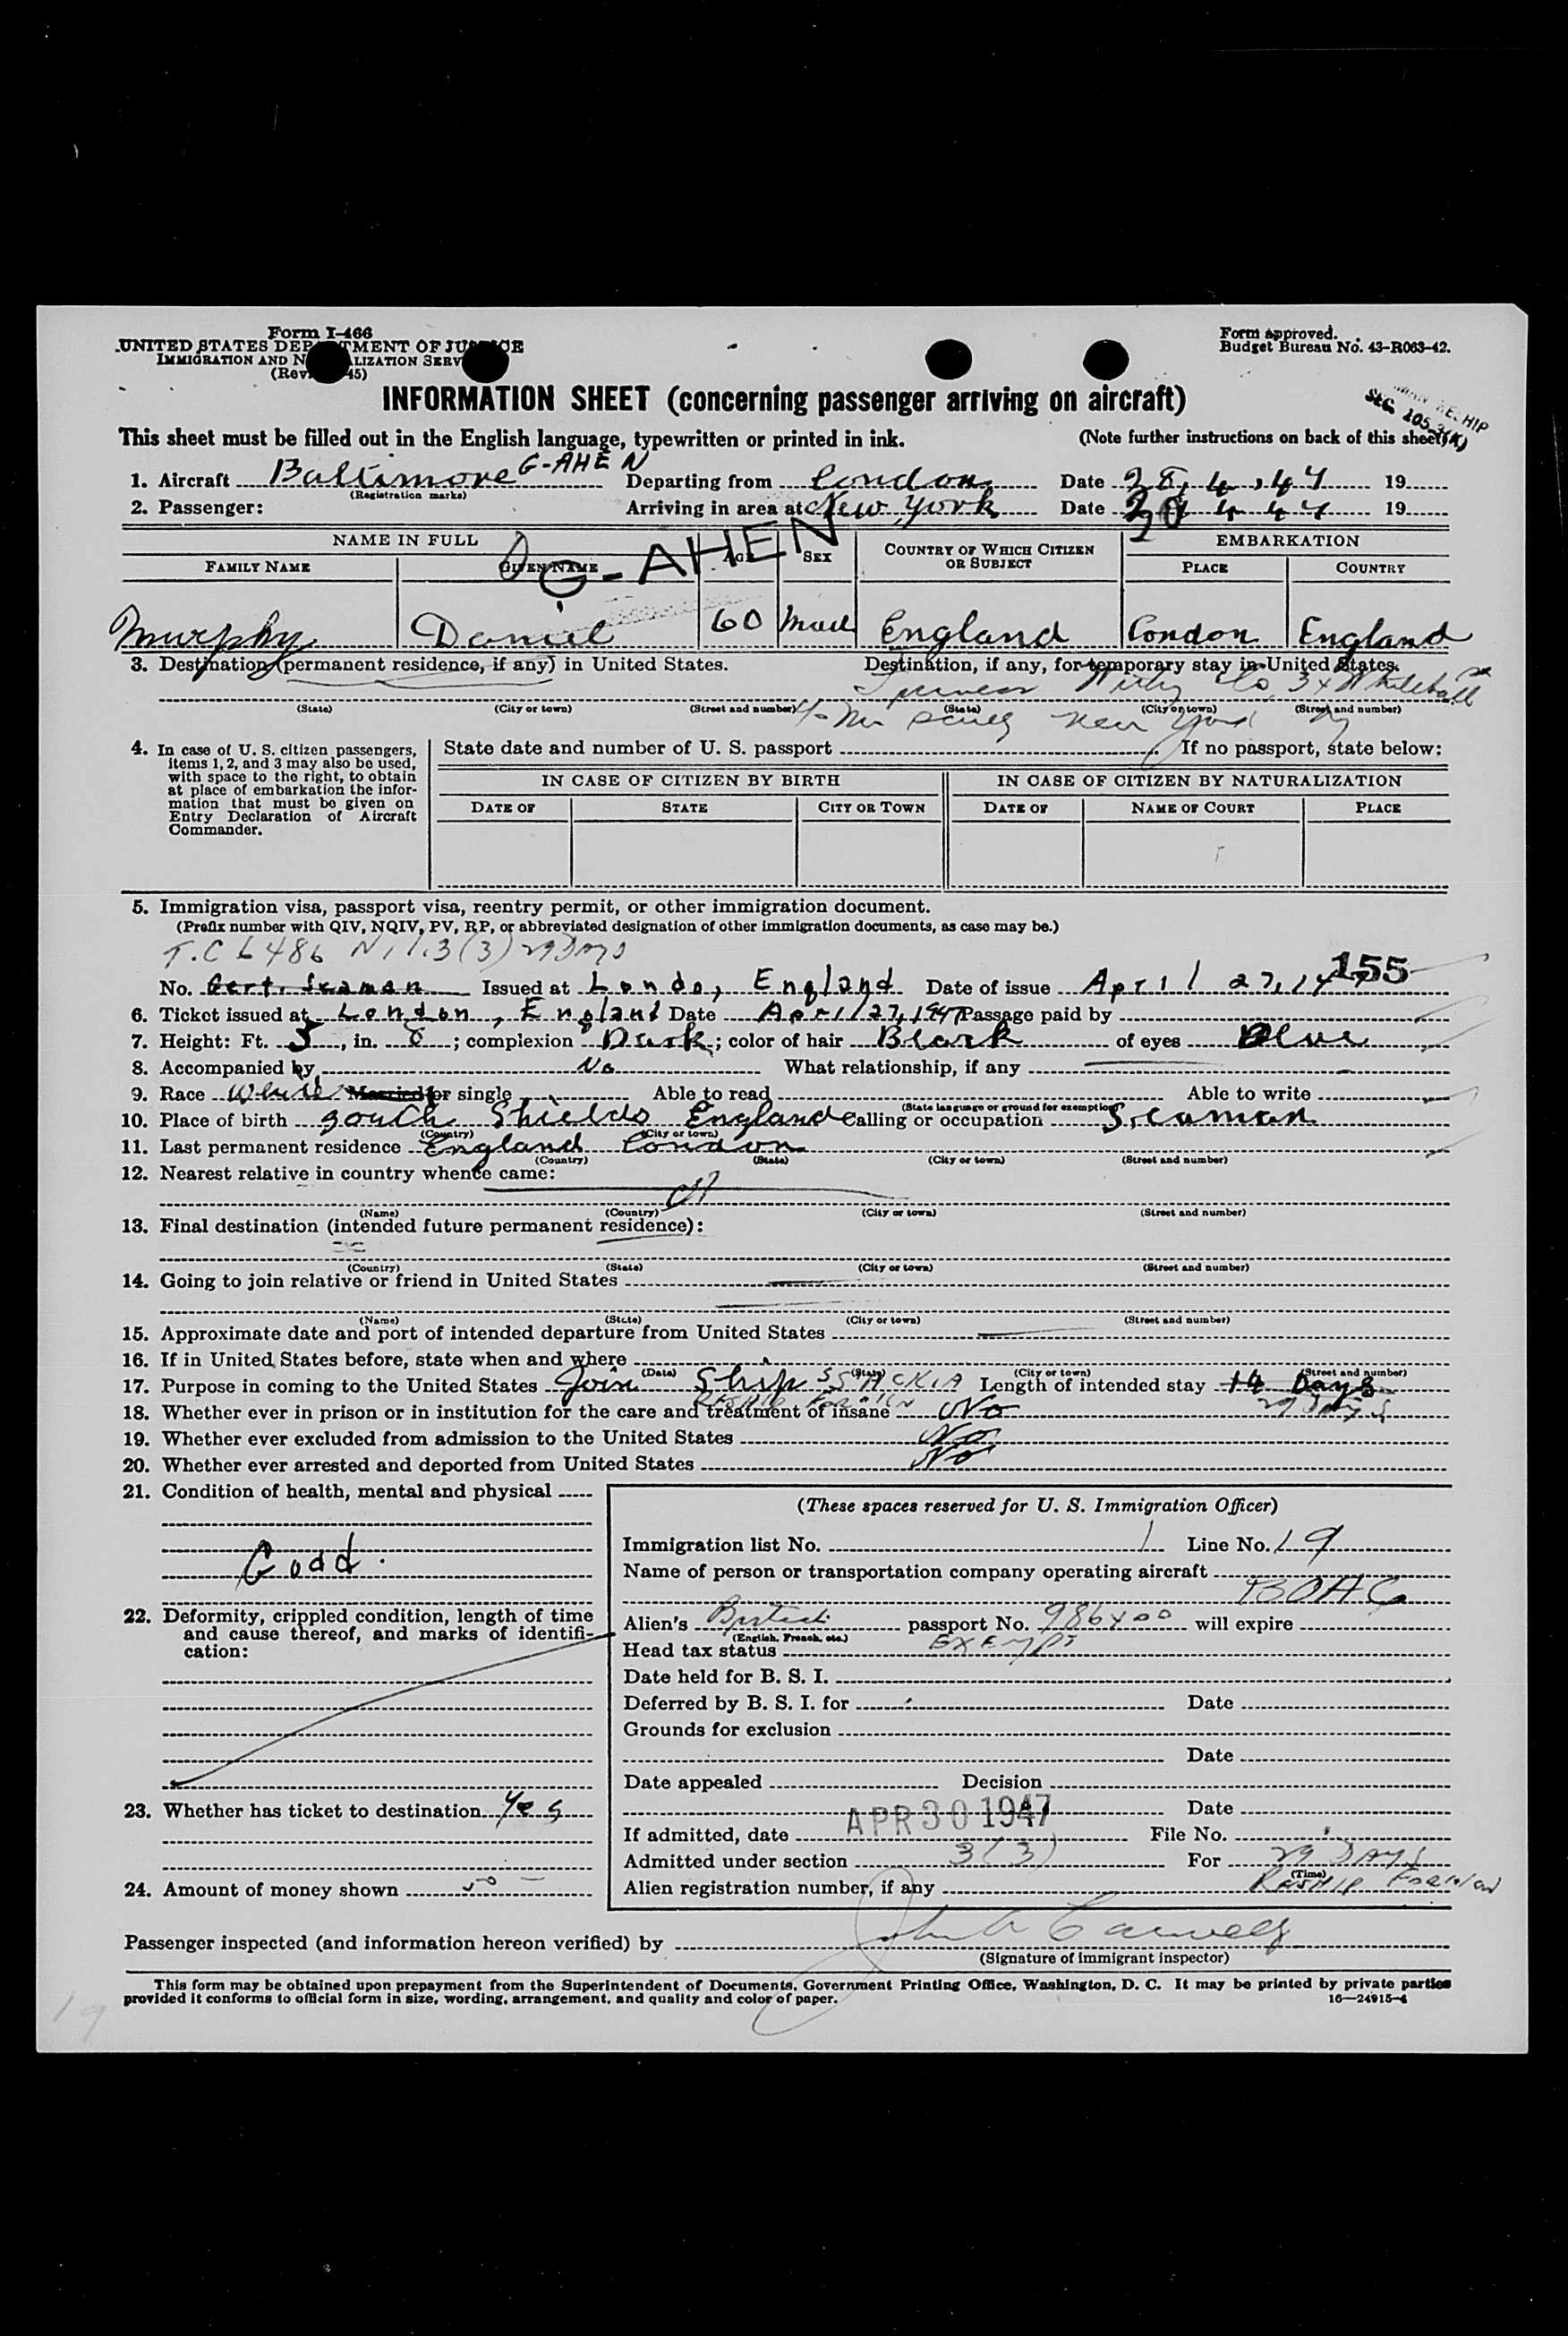 Form I-466
UNITED STATES DEP TMENT OF JU CE
IMMIGRATION AND N LIZATION SERV
(Rev. 45)
Form approved.
Budget Bureau No. 43-R063-42.
INFORMATION SHEET (concerning passenger arriving on aircraft)
SEC. 105.3(K)
This sheet must be filled out in the English language, typewritten or printed in ink. (Note further instructions on back of this sheet)
1. Aircraft Baltimore G-AHEN Departing from London Date 28, 4, 47 19
(Registration marks)
2. Passenger: Arriving in area at New York Date 30 4 47 19
G-AHEN
NAME IN FULL AGE SEX COUNTRY OF WHICH CITIZEN OR SUBJECT EMBARKATION
FAMILY NAME GIVEN NAME PLACE COUNTRY
Murphy Daniel 60 Male England London England
3. Destination (permanent residence, if any) in United States. Destination, if any, for temporary stay in United States.
Whitehall
(State) (City or town) (Street and number) (State) (City or town) (Street and number)
New York NY
4. In case of U. S. citizen passengers, items 1, 2, and 3 may also be used, with space to the right, to obtain at place of embarkation the information that must be given on Entry Declaration of Aircraft Commander.
State date and number of U. S. passport If no passport, state below:
IN CASE OF CITIZEN BY BIRTH IN CASE OF CITIZEN BY NATURALIZATION
DATE OF STATE CITY OR TOWN DATE OF NAME OF COURT PLACE
5. Immigration visa, passport visa, reentry permit, or other immigration document.
(Prefix number with QIV, NQIV, PV, RP, or abbreviated designation of other immigration documents, as case may be.)
T.C 6486 3(3) 29 Days
155
No. Cert. Seaman Issued at London, England Date of issue April 27, 1947
6. Ticket issued at London, England Date April 27, 1947 Passage paid by
7. Height: Ft. 5, in. 8; complexion Dark; color of hair Black of eyes Blue
8. Accompanied by No What relationship, if any
9. Race White Married or single Able to read Able to write
(State language or ground for exemption)
10. Place of birth South Shields England Calling or occupation Seaman
(Country) (City or town)
11. Last permanent residence England London
(Country) (State) (City or town) (Street and number)
12. Nearest relative in country whence came:
(Name) (Country) (City or town) (Street and number)
13. Final destination (intended future permanent residence):
(Country) (State) (City or town) (Street and number)
14. Going to join relative or friend in United States
(Name) (State) (City or town) (Street and number)
15. Approximate date and port of intended departure from United States
16. If in United States before, state when and where
(Date) (State) (City or town) (Street and number)
17. Purpose in coming to the United States Join Ship SS ACKIA Length of intended stay 14 Days
RESHIP FOREIGN 29 Days
18. Whether ever in prison or in institution for the care and treatment of insane No
19. Whether ever excluded from admission to the United States No
20. Whether ever arrested and deported from United States No
21. Condition of health, mental and physical
Good.
22. Deformity, crippled condition, length of time and cause thereof, and marks of identification:
23. Whether has ticket to destination Yes
24. Amount of money shown 50 —
(These spaces reserved for U. S. Immigration Officer)
Immigration list No. 1 Line No. 19
Name of person or transportation company operating aircraft
BOAC
Alien's British passport No. will expire
(English, French, etc.)
Head tax status EXEMPT
Date held for B. S. I.
Deferred by B. S. I. for Date
Grounds for exclusion
Date
Date appealed Decision
Date
If admitted, date APR 30 1947 File No.
Admitted under section 3(3) For 29 DAYS
(Time)
Alien registration number, if any RESHIP FOREIGN
Passenger inspected (and information hereon verified) by John
(Signature of immigrant inspector)
This form may be obtained upon prepayment from the Superintendent of Documents, Government Printing Office, Washington, D. C. It may be printed by private parties
provided it conforms to official form in size, wording, arrangement, and quality and color of paper. 16—24915-4
19